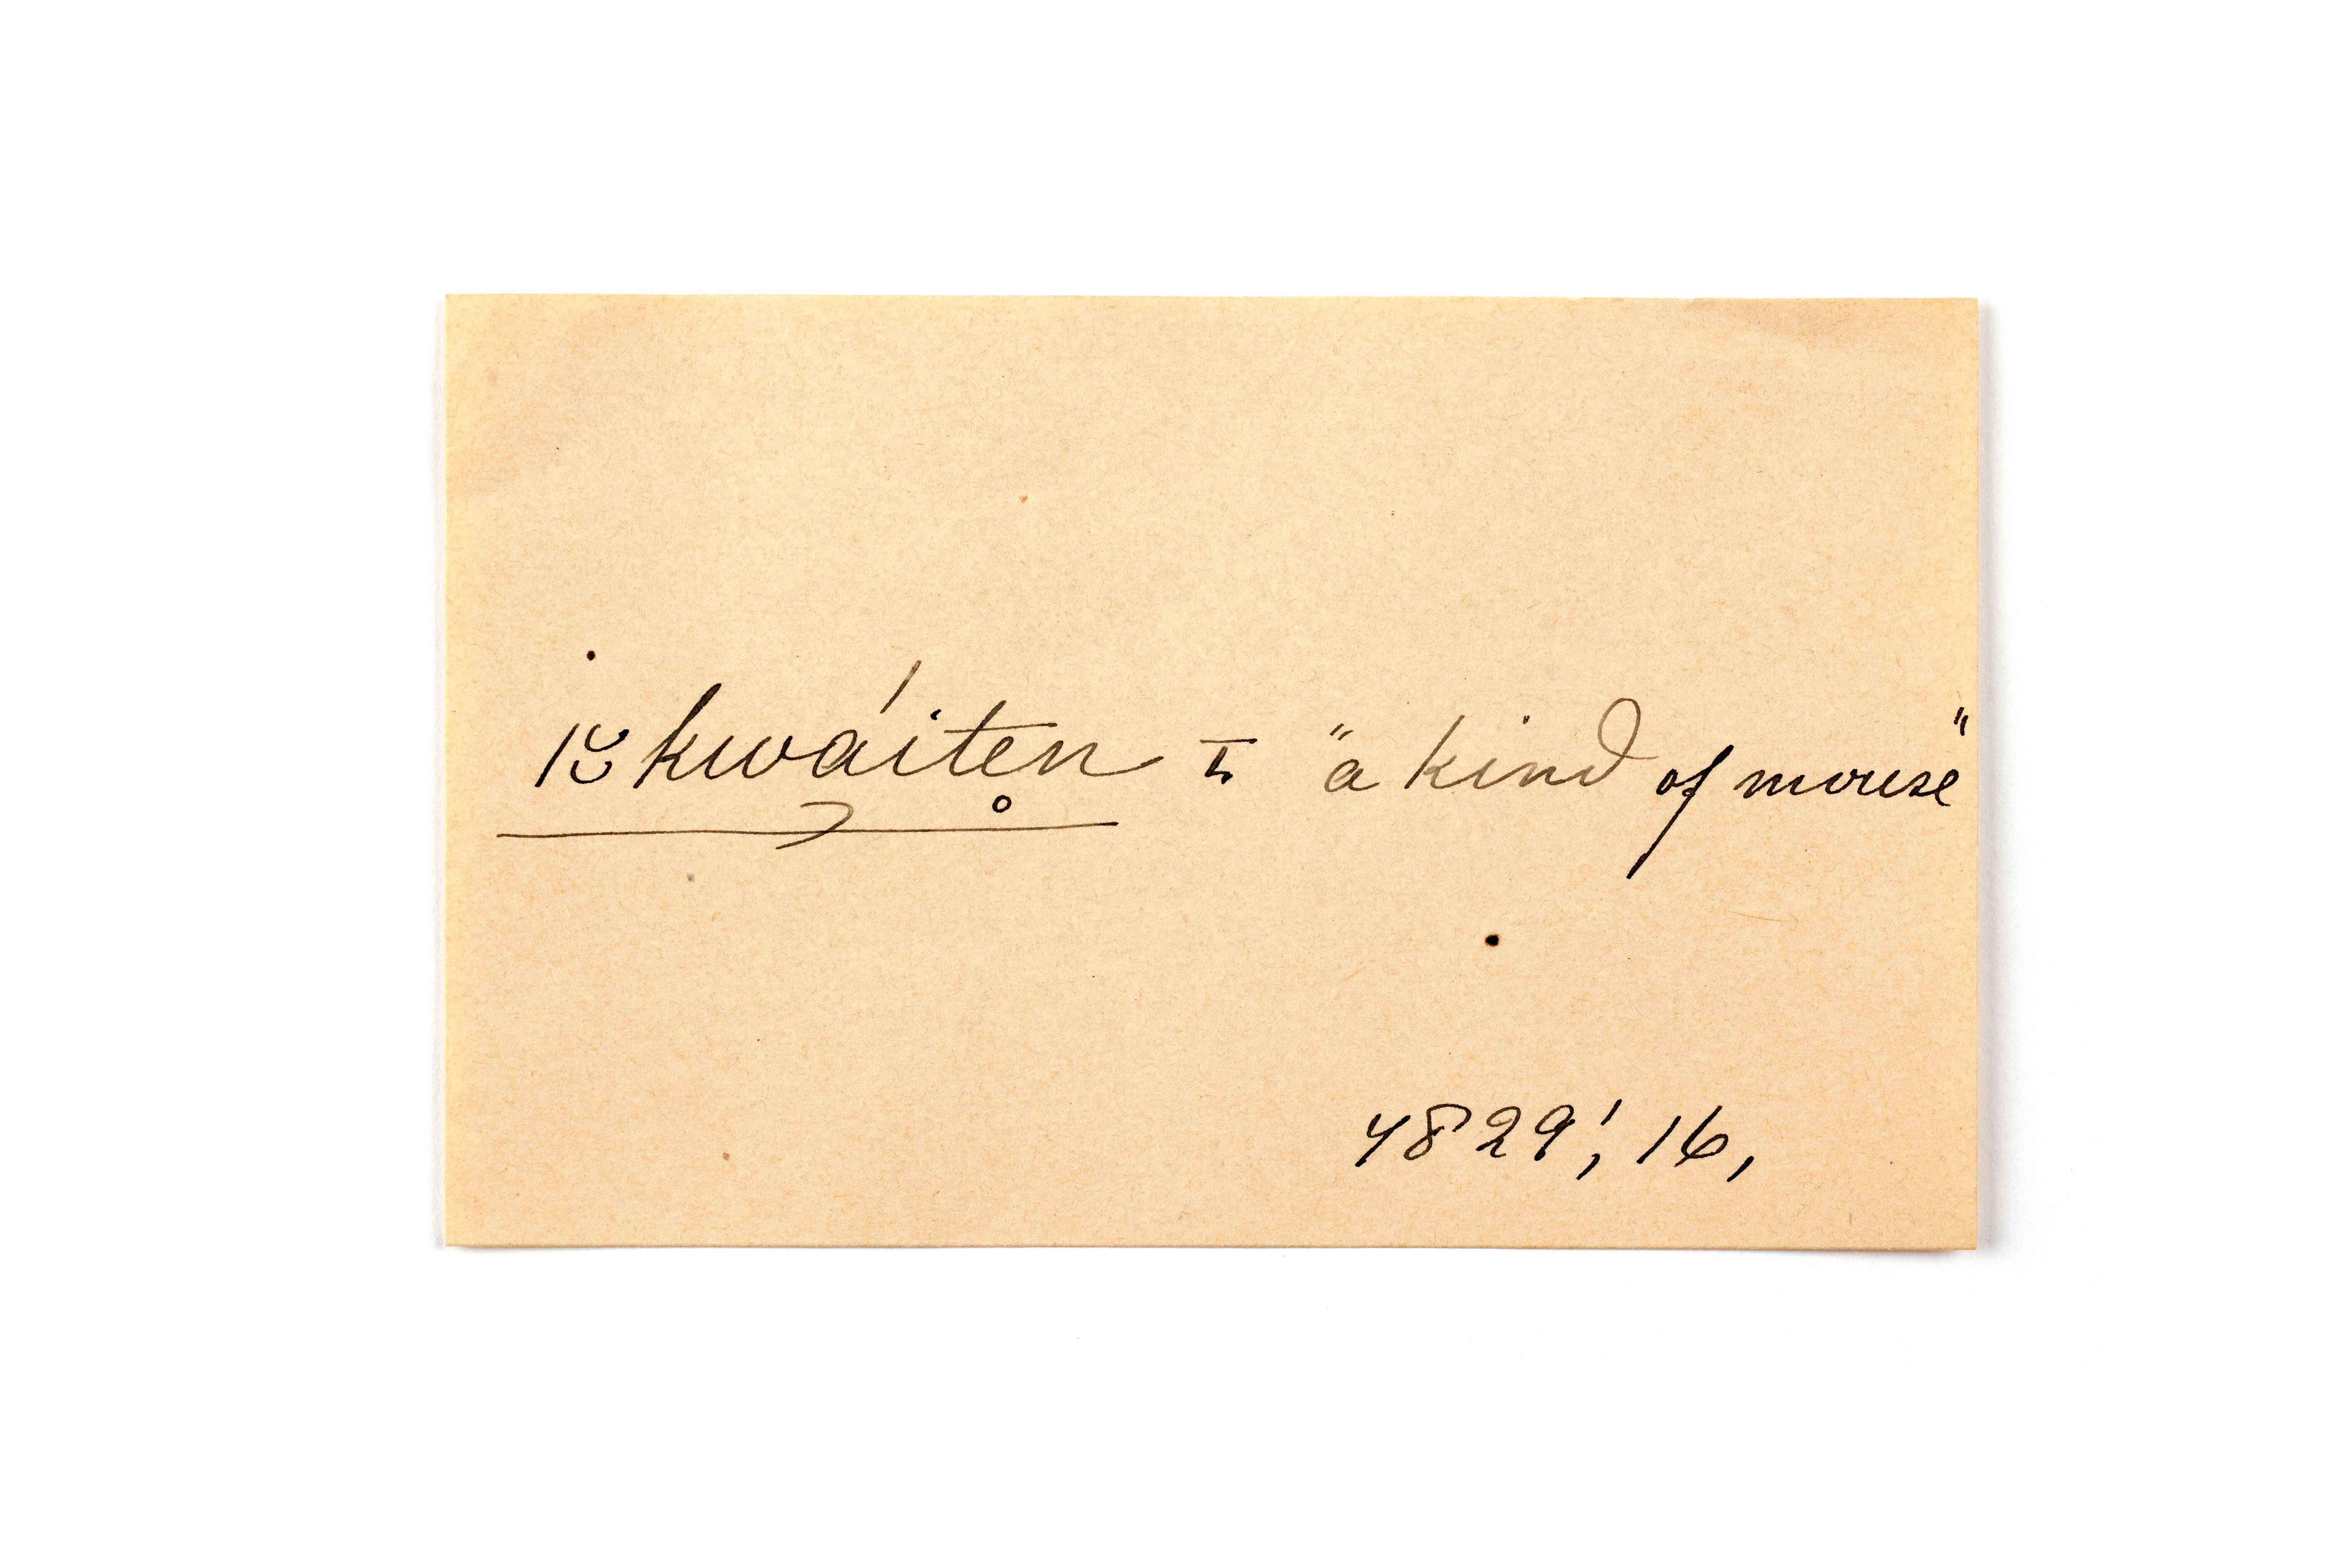 iskwáiten = "a kind of mouse"
4829; 16,